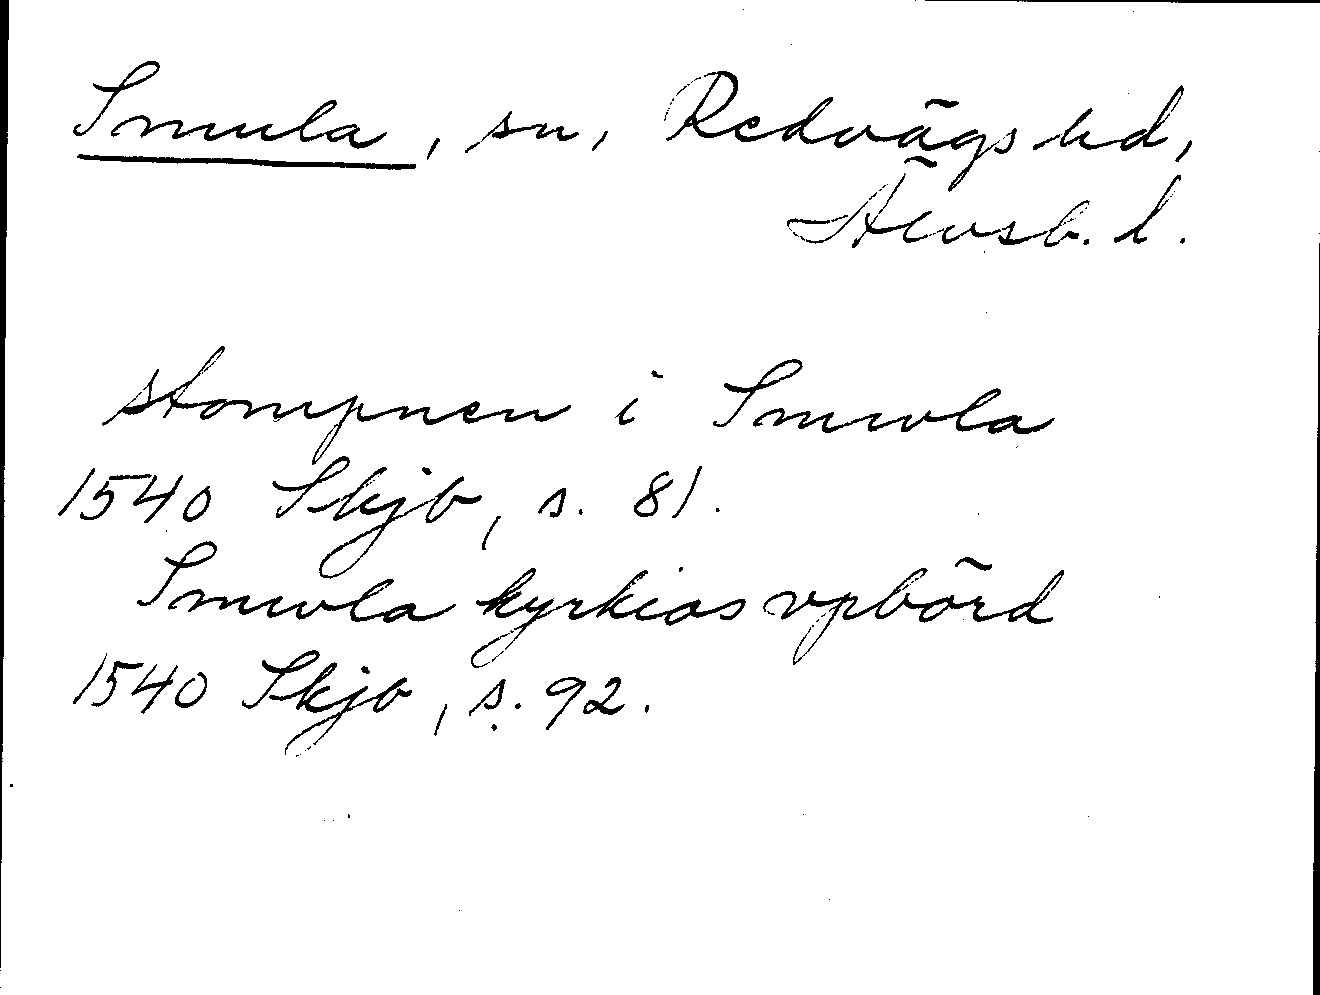 Smula, sn, Redvägs hd,
Älvsb. l.
stompnen i Smwla
1540 Skjb, s. 81.
Smwla kyrkias vpbörd
1540 Skjb, s. 92.